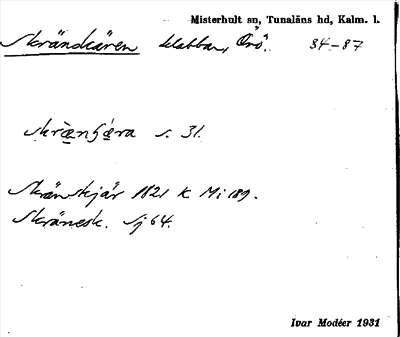 Misterhult sn, Tunaläns hd, Kalm. l.
Skrändskären klabbar, Örö. 34-87
s. 31.
Skränskjär 1821 K Mi 189.
Skränesk. Sj 64.
Ivar Modéer 1931